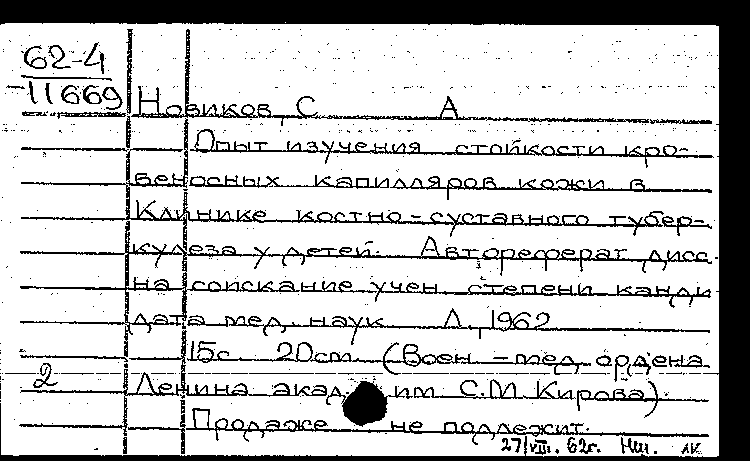 62-4
-11669
Новиков, С А
Опыт изучения стойкости кро-
веносных капилляров кожи в
Клинике костно-суставного тубер-
кулеза у детей. Автореферат дисс.
на соискание учен степени канди
дата мед. наук Л., 1962
15с. 20см. (Воен-мед ордена
2 Ленина акад им С.М Кирова).
Продаже не подлежит.
27/VIII. 62г.